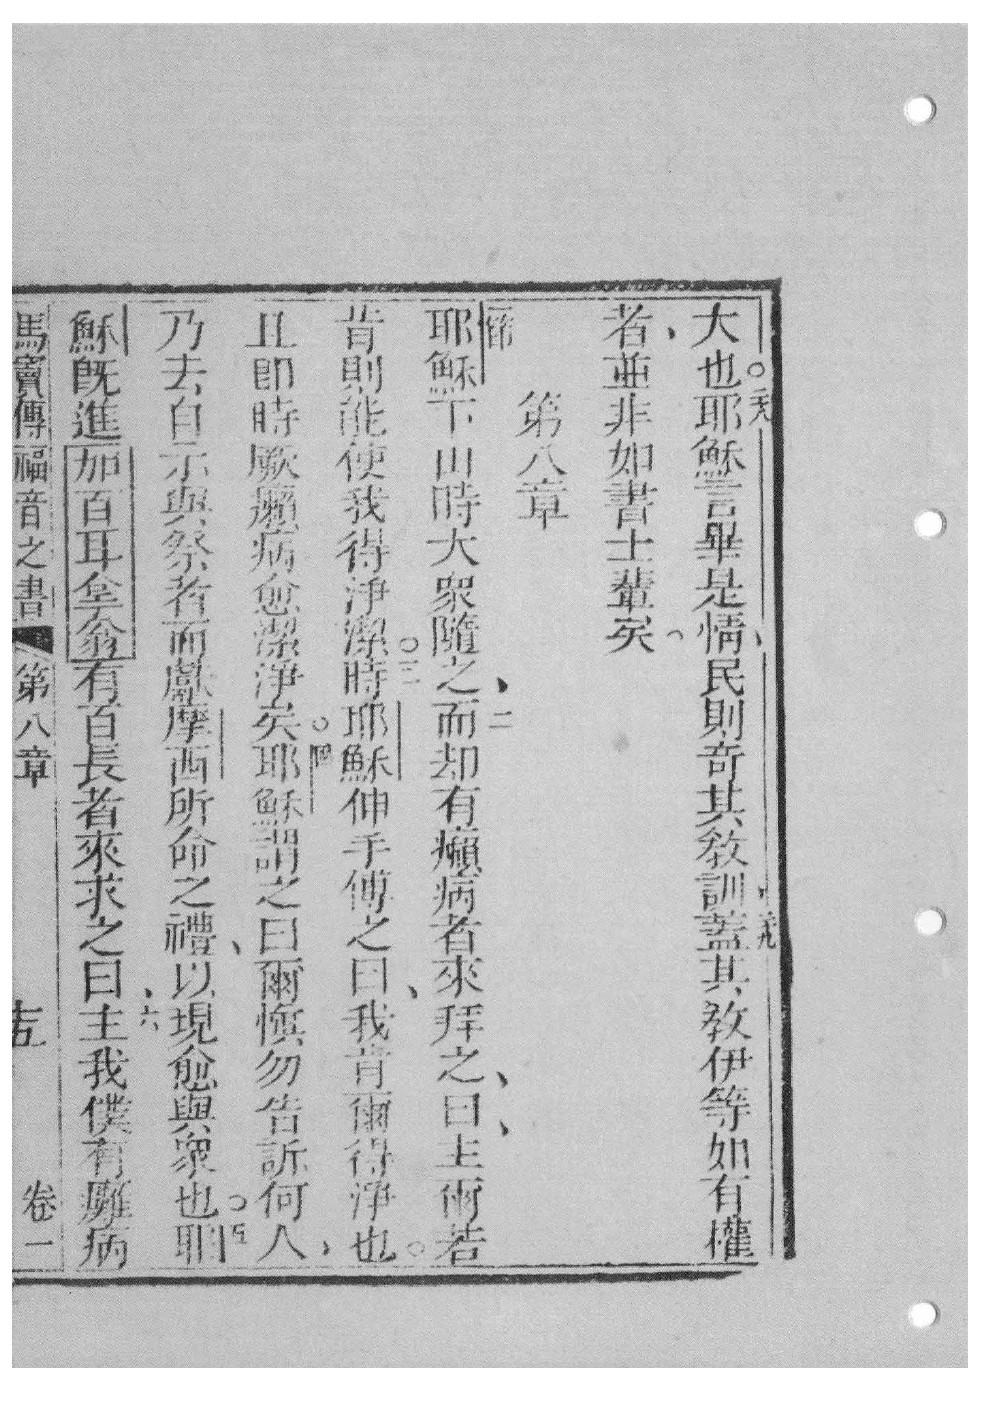 大也。二八耶穌言畢是情、民則奇其教訓、二九蓋其教伊等如有權
者、並非如書士輩矣。
第八章
一節耶穌下山時大眾隨之、二而却有癩病者來拜之、曰、主爾若
肯則能使我得淨潔。三時耶穌伸手傅之曰、我肯爾得淨也。
且即時厥癩病愈潔淨矣。四耶穌謂之曰爾慎勿告訴何人、
乃去自示與祭者而獻摩西所命之禮、以現愈與眾也。五耶
穌既進加百耳拿翁有百長者來求之曰、六主我僕有癱病
馬竇傳福音之書 第八章 十五 卷一